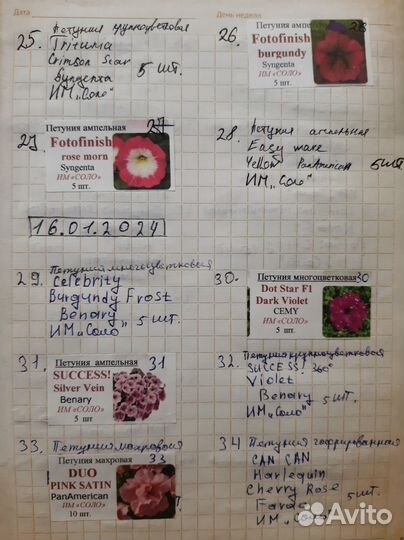 Дата
День недели
25. Петуния крупноцветковая
Тритуния
Crimson Star
Syngenta 5 шт.
ИМ „Соло"
26.
Петуния ампельная 26
Fotofinish
burgundy
Syngenta
ИМ «СОЛО»
5 шт.
27.
Петуния ампельная 27
Fotofinish
rose morn
Syngenta
ИМ «СОЛО»
5 шт.
28. Петуния ампельная
Easy wave
Yellow PanAmerican 5 шт
ИМ „Соло"
16.01.2024
29. Петуния многоцветковая
Celebrity
Burgundy Frost
Benary 5 шт.
ИМ „Соло"
30.
Петуния многоцветковая 30
Dot Star F1
Dark Violet
CEMY
ИМ «СОЛО»
5 шт
31.
Петуния ампельная 31
SUCCESS!
Silver Vein
Benary
ИМ «СОЛО»
5 шт
32. Петуния крупноцветковая
SUCCESS! 360°
Violet
Benary 5 шт.
ИМ „Соло"
33. Петуния махровая
Петуния махровая 33
DUO
PINK SATIN
PanAmerican
ИМ «СОЛО»
10 шт.
34 Петуния гофрированная
CAN CAN
Harlequin
Cherry Rose
Farao 5 шт.
ИМ „Соло"
Avito